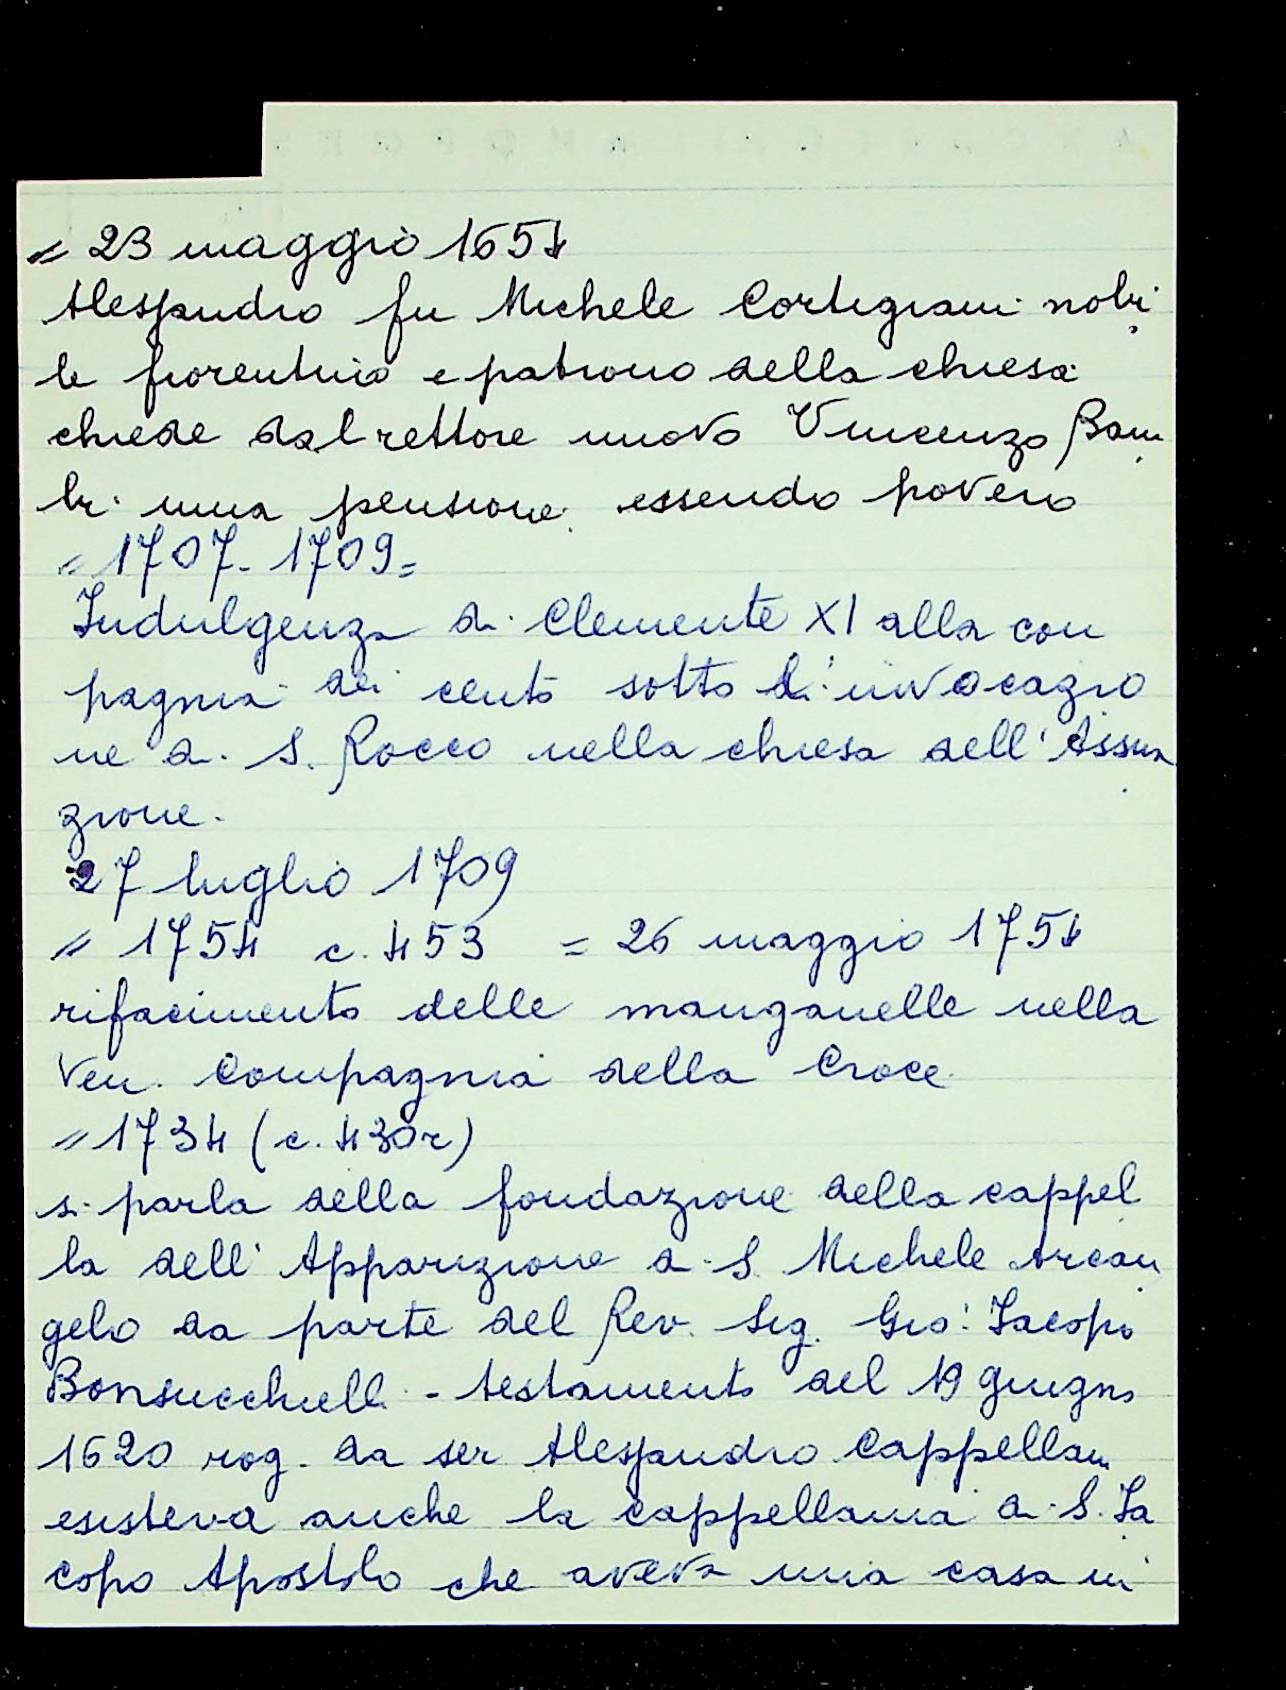 = 23 maggio 1654
Alessandro fu Michele Cortigiani nobi
le fiorentino e patrono della chiesa
chiede dal rettore nuovo Vincenzo Bam
bi una pensione essendo povero
= 1707-1709=
Indulgenza di Clemente XI alla com
pagnia dei cento sotto l'invocazio
ne di S. Rocco nella chiesa dell'Assun
zione.
27 luglio 1709
= 1754 c. 453 = 26 maggio 1754
rifacimento delle manganelle nella
Ven. Compagnia della Croce
= 1734 (c. 430r)
si parla della fondazione della cappel
la dell'Apparizione di S. Michele Arcan
gelo da parte del Rev. Sig. Gio: Iacopo
Bonsucchielli - testamento del 19 giugno
1620 rog. da ser Alessandro Cappellani
esisteva anche la cappellania di S. Ia
copo Apostolo che aveva una casa in